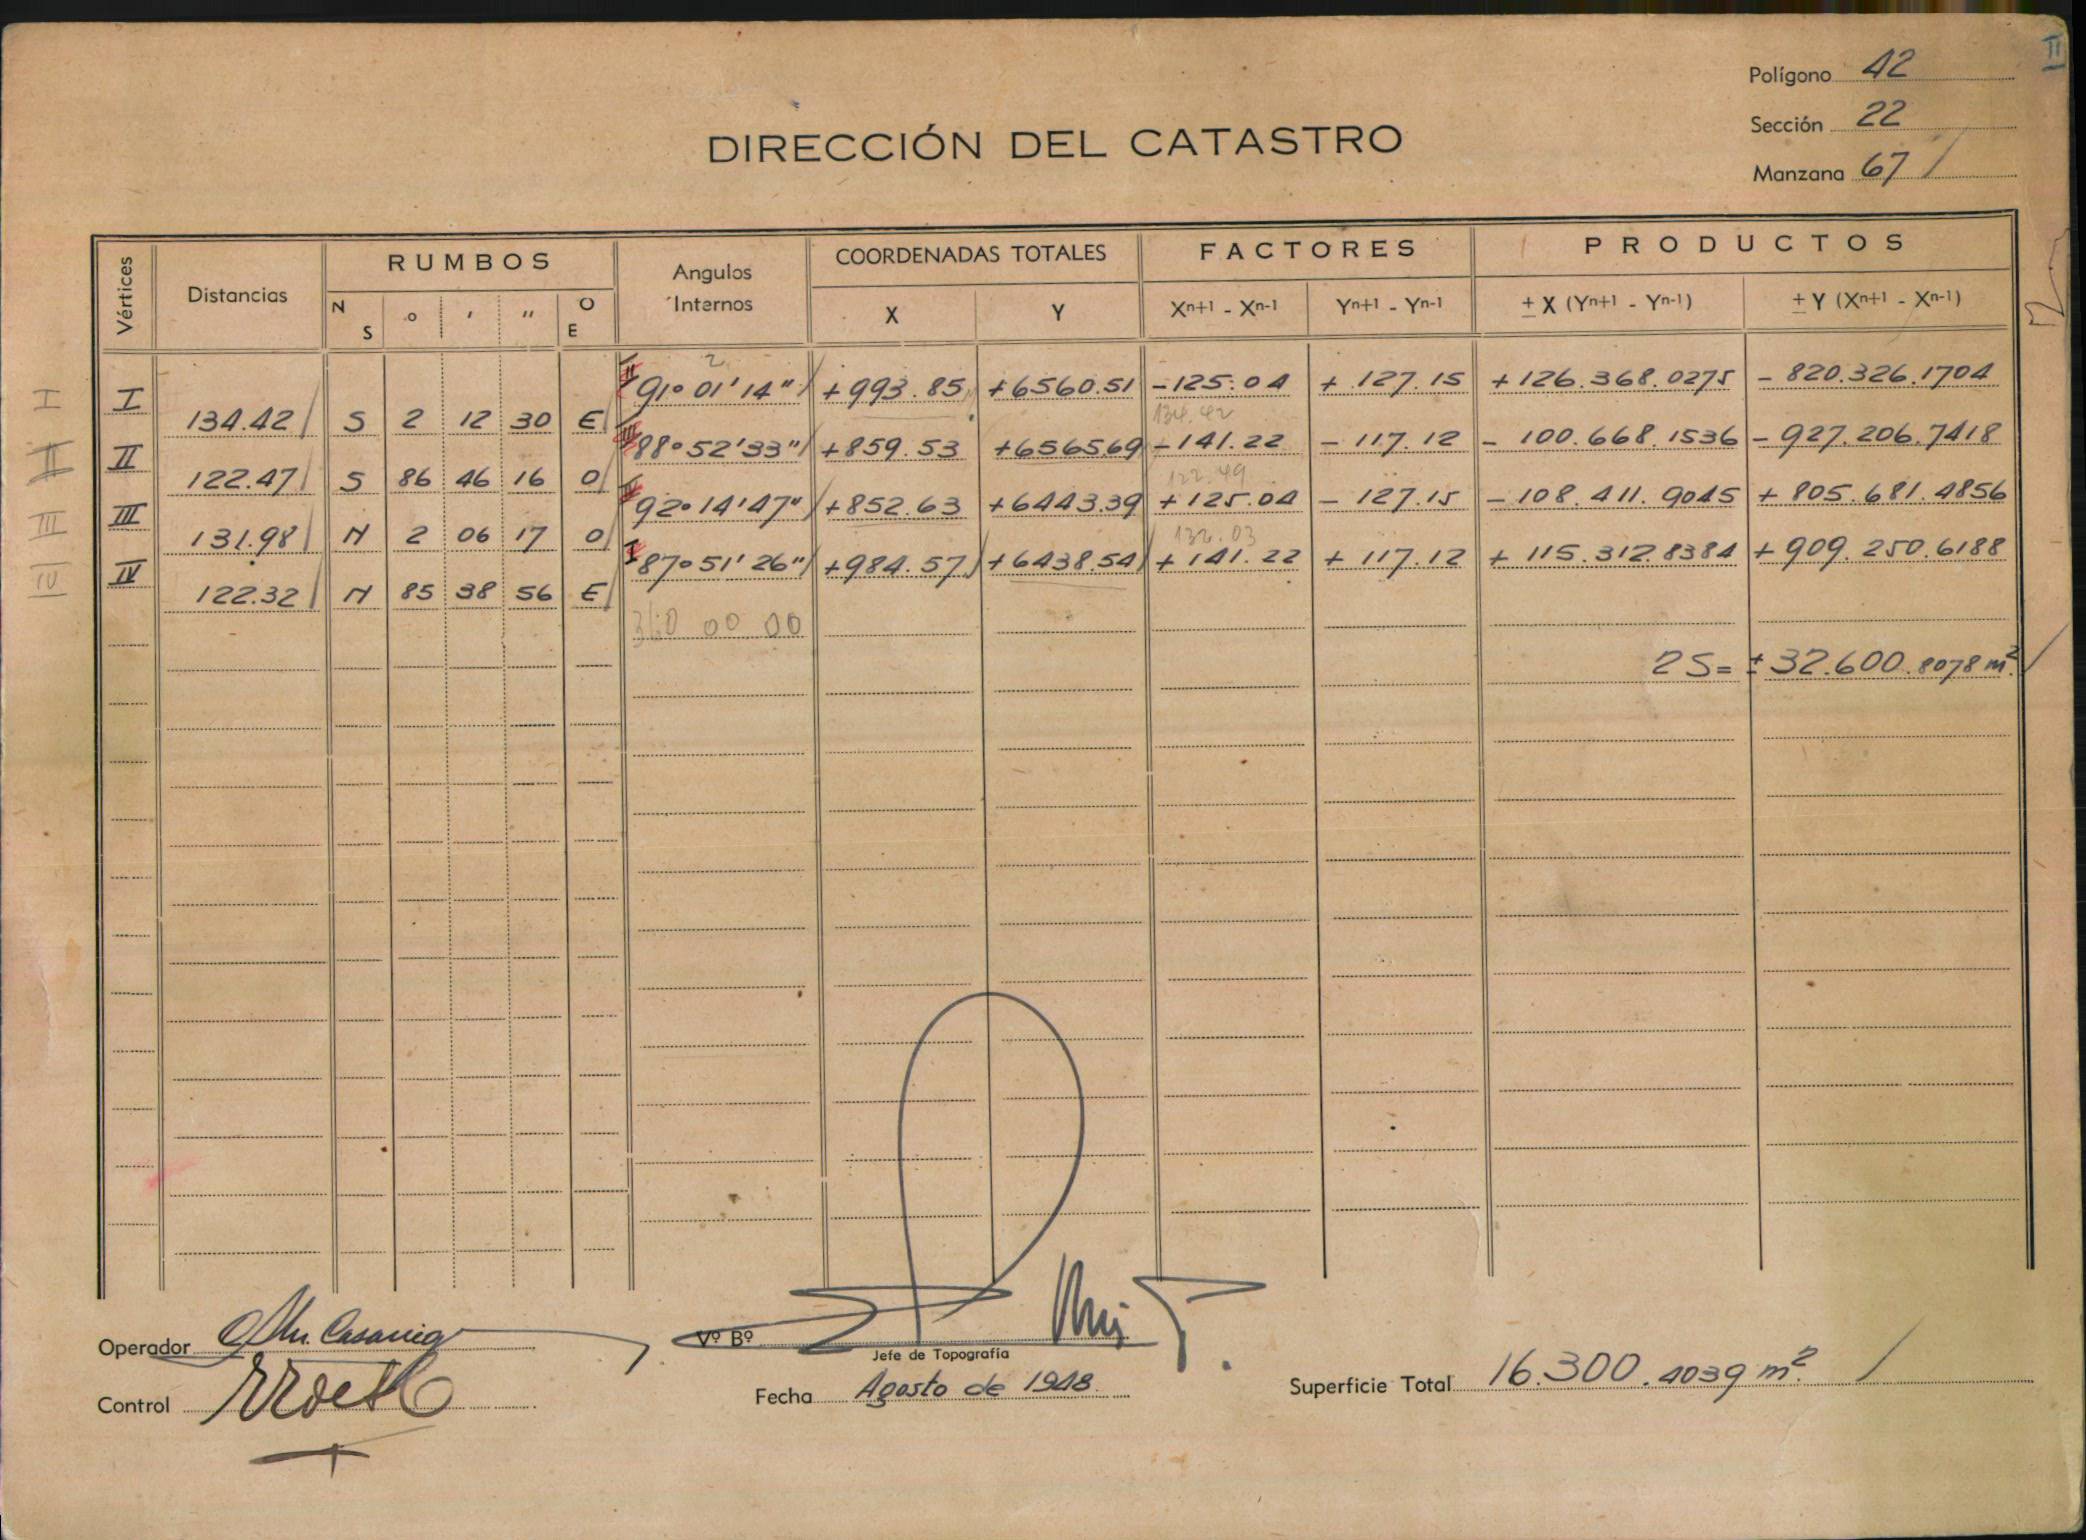 II
Polígono 42
Sección 22
Manzana 67
DIRECCIÓN DEL CATASTRO
Vértices Distancias RUMBOS Angulos Internos COORDENADAS TOTALES FACTORES PRODUCTOS
N S o ' '' O E X Y Xn+1 - Xn-1 Yn+1 - Yn-1 ± X (Yn+1 - Yn-1) ± Y (Xn+1 - Xn-1)
2
I I II 91º 01' 14" +993.85 +6560.51 -125.04 + 127.15 + 126.368.0275 - 820.326.1704
134.42 S 2 12 30 E 134.42
II II III 88º 52' 33" +859.53 +6565.69 -141.22 - 117.12 - 100.668.1536 - 927.206.7418
122.47 S 86 46 16 O 122.49
III III 92º 14' 47" +852.63 +6443.39 +125.04 - 127.15 - 108.411.9045 + 805.681.4856
131.98 N 2 06 17 O 132.03
IV IV I 87º 51' 26" +984.57 +6438.54 + 141.22 + 117.12 + 115.312.8384 + 909.250.6188
122.32 N 85 38 56 E
360 00 00
2S = ± 32.600.8078 m²
Operador
Control
Vº Bº
Jefe de Topografía
Fecha Agosto de 1948
Superficie Total 16.300.4039 m²